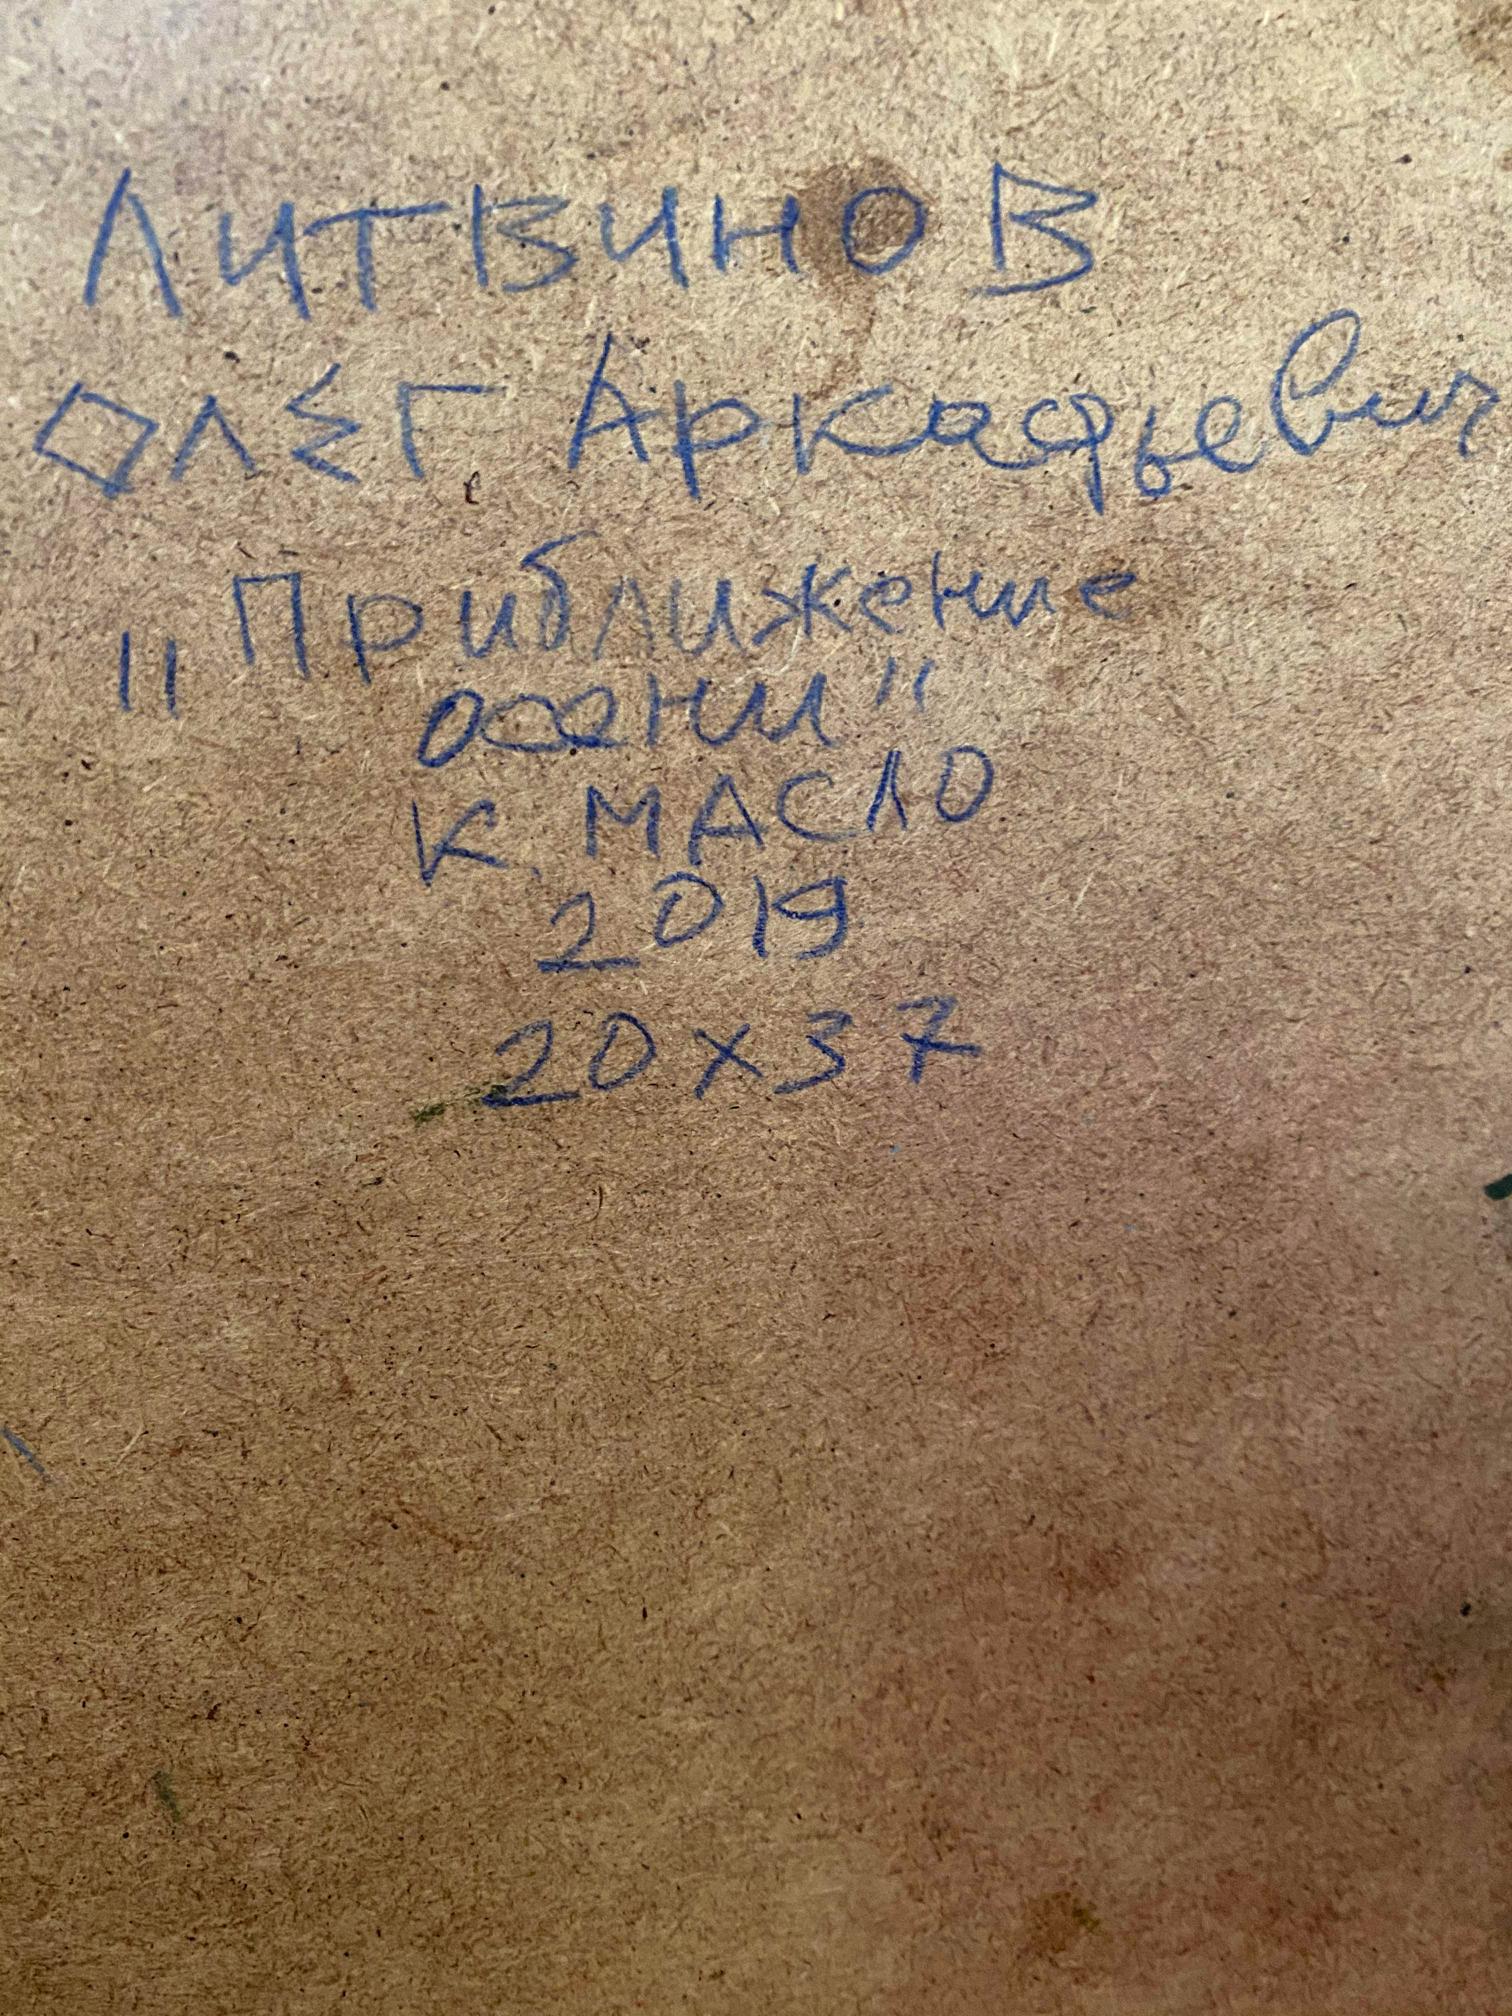 ЛИТВИНОВ
ОЛЕГ Аркадьевич
"Приближение
осени"
К. МАСЛО
2019
20 x 37